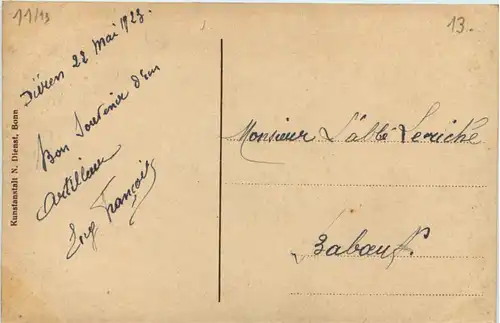 11/13
13.
Düren 22 Mai 1923
Bon Souvenir d'un
Artilleur
Eug François
Monsieur L'abbé Leriche
Kunstanstalt N. Dienst, Bonn